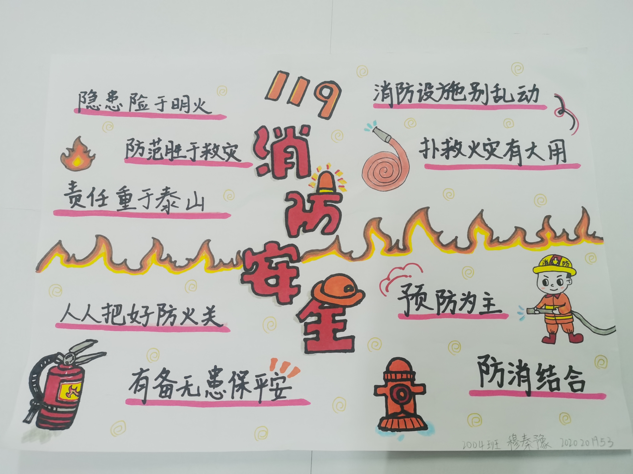 119
消防安全
隐患险于明火
防范胜于救灾
责任重于泰山
消防设施别乱动
扑救火灾有大用
人人把好防火关
有备无患保平安
预防为主
防消结合
2004班